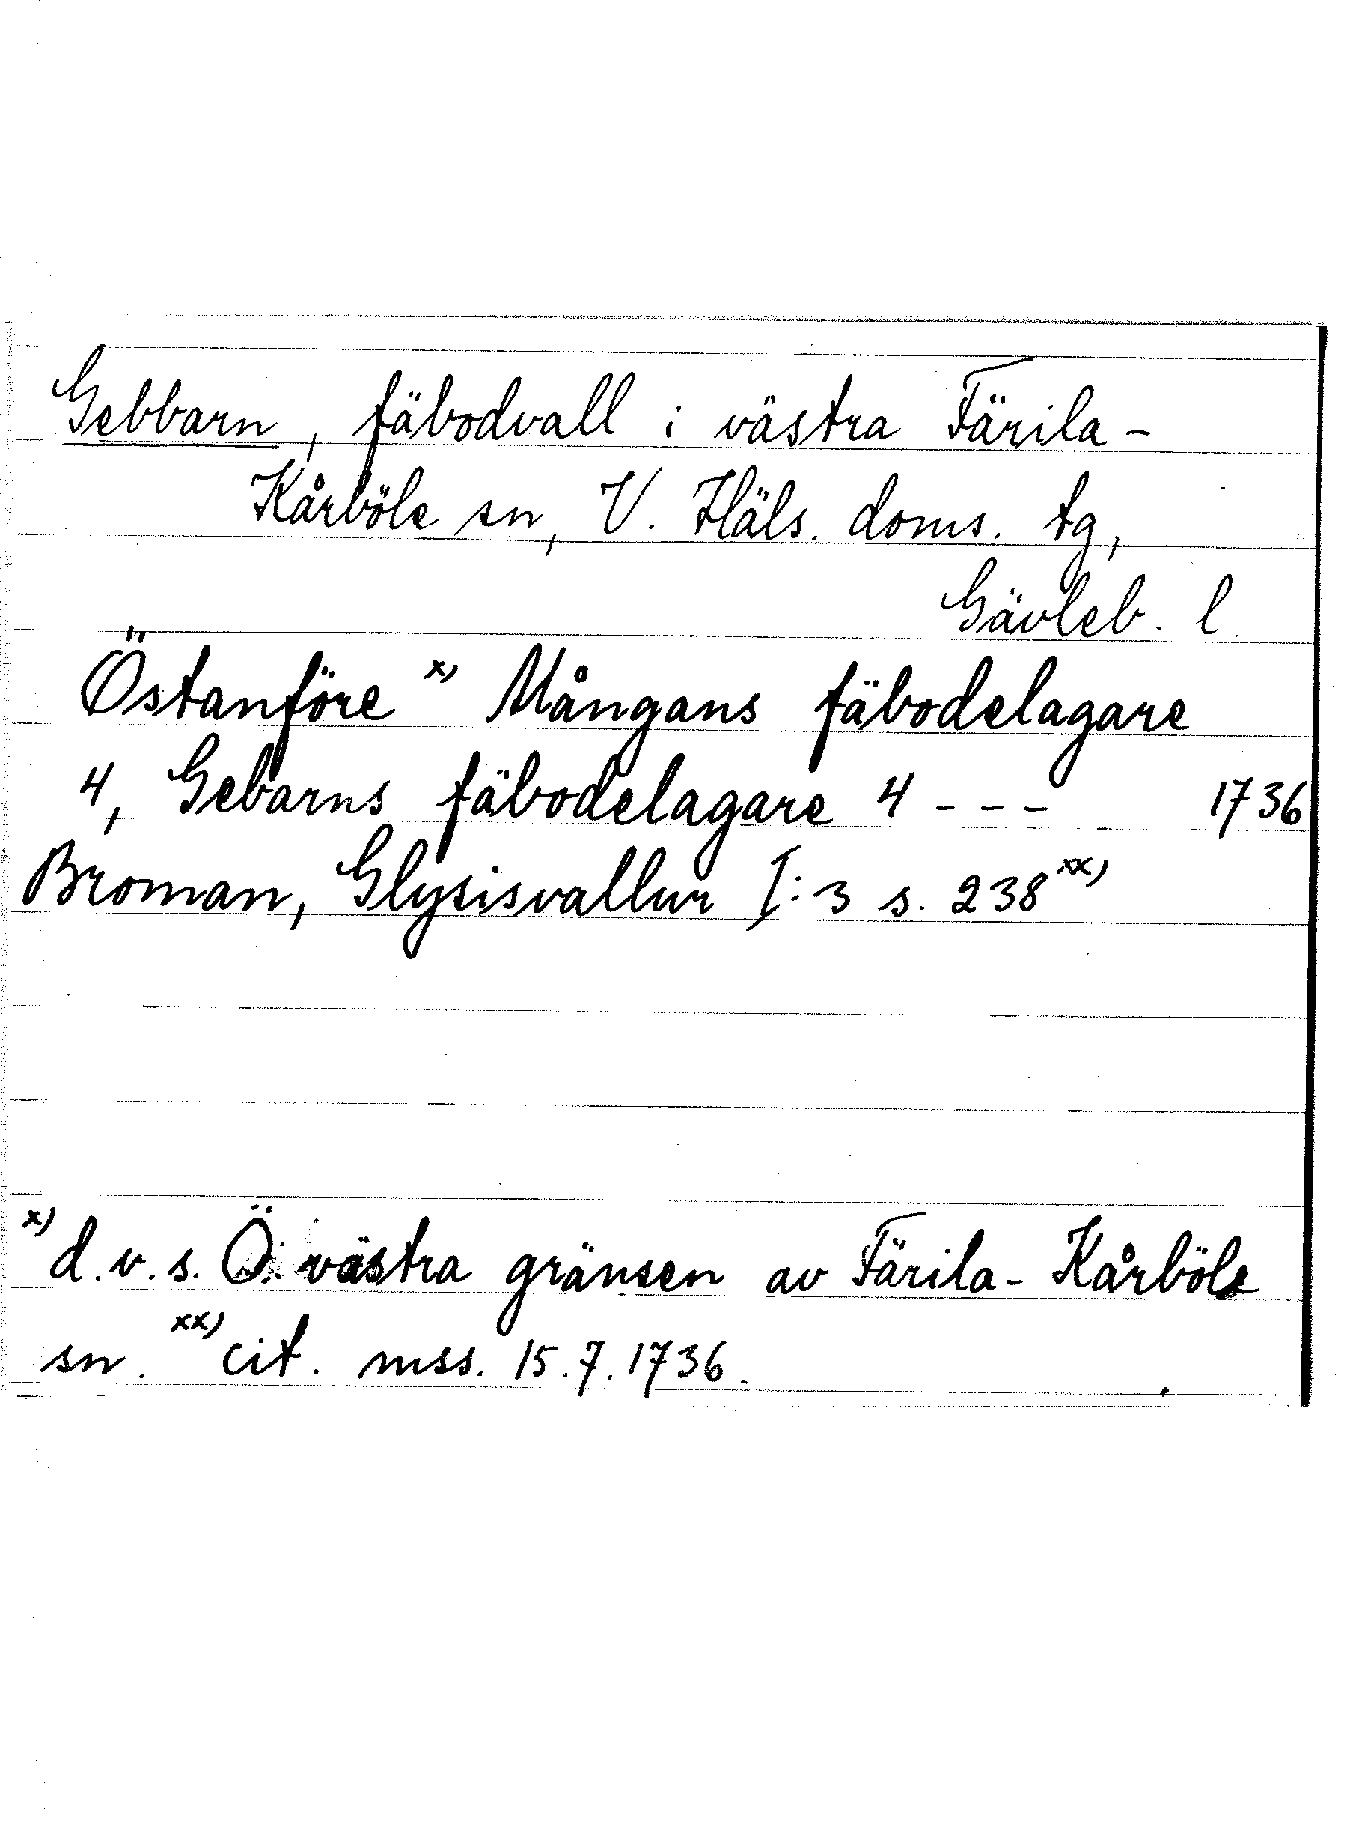 Gebbarn, fäbodvall i västra Färila-
Kårböle sn, V. Häls. doms. tg,
Gävleb. l
Östanföre x) Mångans fäbodelagare
4, Gebarns fäbodelagare 4 - - - 1736
Broman, Glysisvallur I:3 s. 238 xx)
x) d.v.s. Ö. västra gränsen av Färila-Kårböle
sn. xx) cit. mss. 15.7.1736.